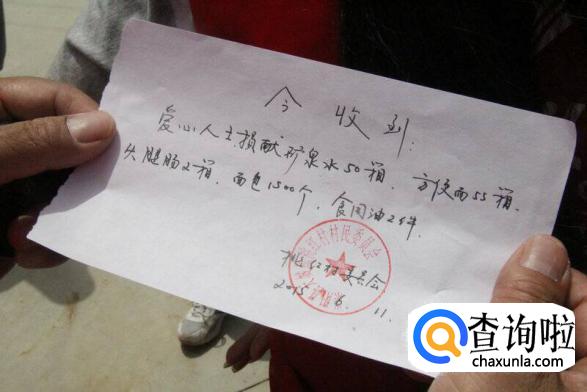 今收到:
爱心人士损献矿泉水50箱、方便面55箱、
火腿肠2箱、面包1500个、食用油2件.
红村村民委员会
桃红村委员会
2015 6. 11.
查询啦
chaxunla.com